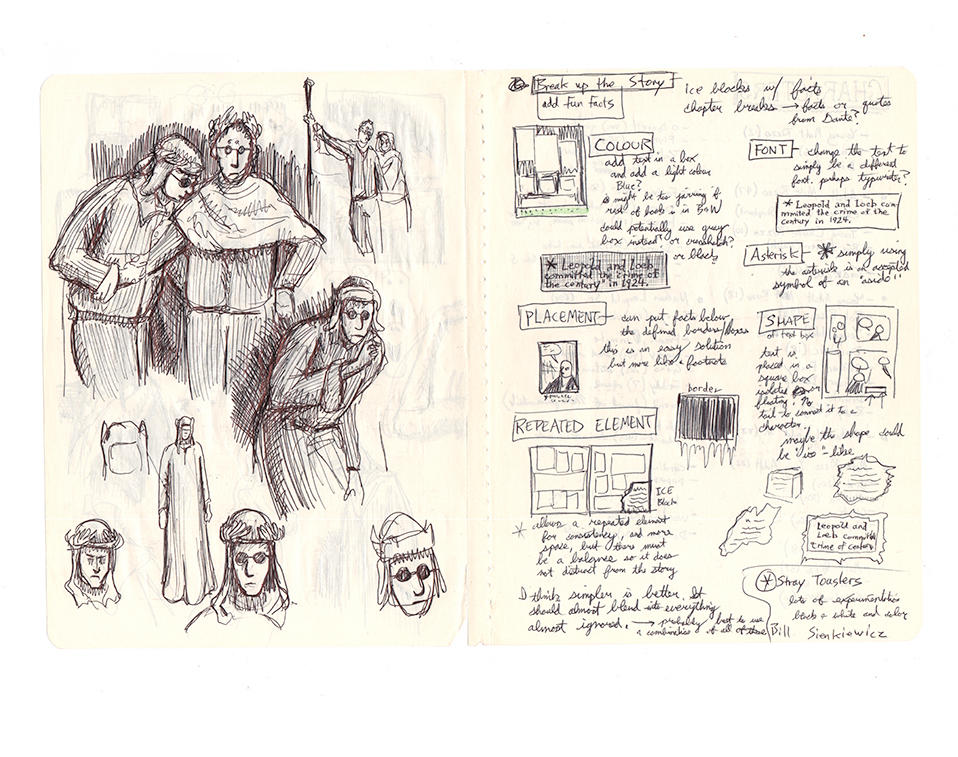 Break up the Story
add fun facts
ice blocks w/ facts
chapter breaks → facts or quotes
from Dante?
COLOUR
add text in a box
and add a light colour
Blue?
↳ might be too jarring if
rest of book is in B+W
could potentially use gray
box instead? or crosshatch?
or black
* Leopold and Loeb
committed the crime of
the century" in 1924.
FONT → change the text to
simply be a different
font. perhaps typewriter?
* Leopold and Loeb com-
mitted the crime of the
century in 1924.
Asterisk → * simply using
the asterisk is an accepted
symbol of an "aside"
PLACEMENT → can put facts below
the defined borders/boxes
this is an easy solution
but more like a footnote
SHAPE
of text box
text is
placed in a
square box
isolated or
floating. No
tail to connect it to a
character.
maybe the shape could
be "ice"-like
border
REPEATED ELEMENT
ICE
Block
* allows a repeated element
for consistency, and more
space, but there must
be a balance so it does
not distract from the story
Leopold and
Loeb committed
crime of century
I think simpler is better. It
should almost blend into everything
almost ignored. → probably best to use
a combination of all of these
* Stray Toasters
lots of experimentation
black + white and color
Bill Sienkiewicz